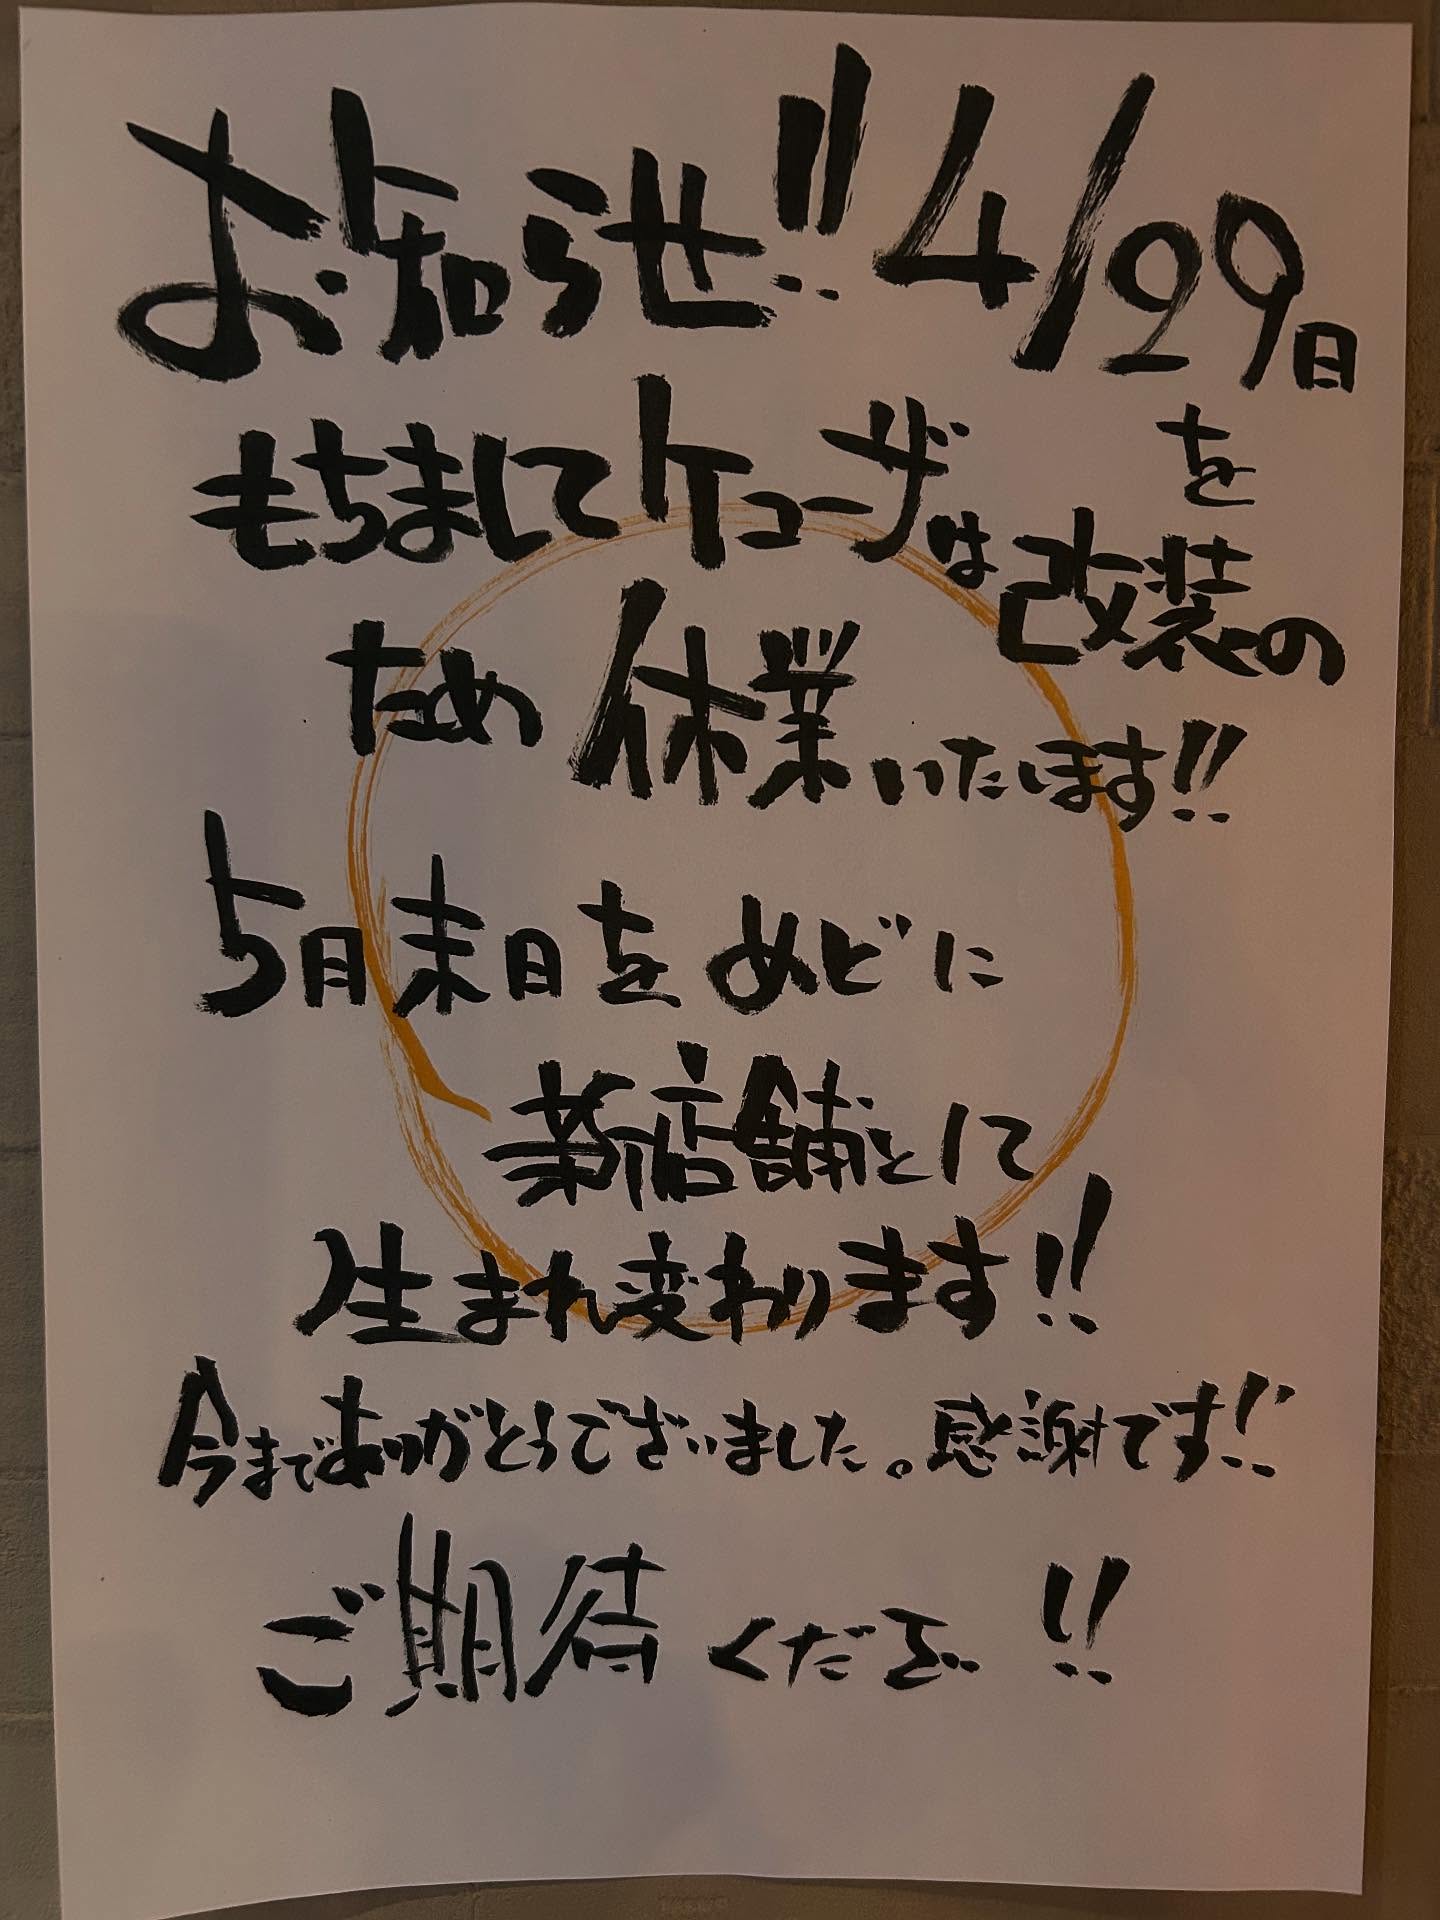 お知らせ!! 4/29日を
もちまして ケューザは改装の
ため 休業いたします!!
5月末日を めどに
新店舗として
生まれ変わります!!
今までありがとうございました。感謝です!!
ご期待 ください !!